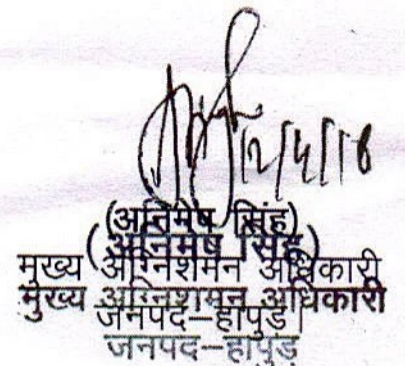 12/4/18
(अनिमेष सिंह)
(अनिमेष सिंह)
मुख्य अग्निशमन अधिकारी
मुख्य अग्निशमन अधिकारी
जनपद–हापुड़।
जनपद–हापुड़